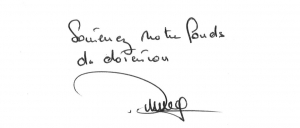 Soutenez notre fonds
de dotation